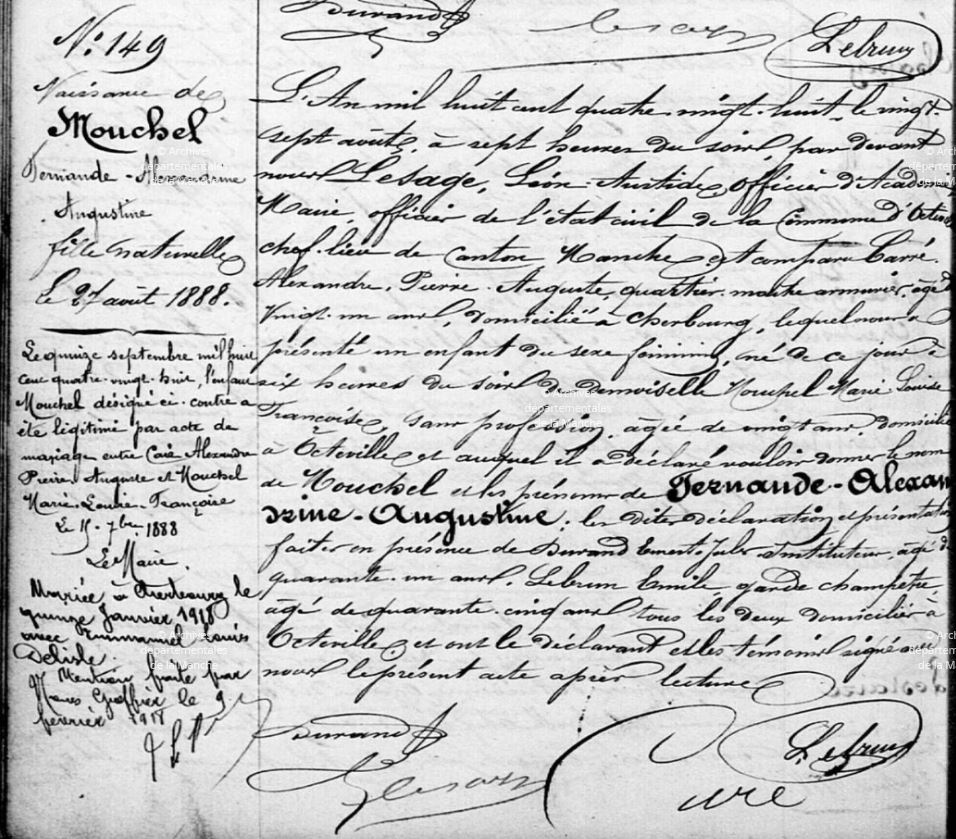 Durand Lesage Lebrun
N° 149
Naissance de
Mouchel
Fernande-Alexandrine
Augustine
fille naturelle
Le 27 août 1888.
Le quinze septembre mil huit
cent quatre-vingt-huit, l'enfant
Mouchel désigné ci-contre a
été légitimé par acte de
mariage entre Carré Alexandre
Pierre Auguste et Mouchel
Marie-Louise-Françoise
Le 15 7bre 1888
Le Maire.
Mariée à Cherbourg le
quinze Janvier 1918
avec Emmanuel Louis
Delisle.
Mention faite par
nous Greffier le 9
février 1918
L'An mil huit cent quatre-vingt-huit, le vingt-
sept août, à sept heures du soir par devant
nous Lesage, Léon-Aristide, officier d'Académie,
Maire, officier de l'état civil de la Commune d'Octeville
chef-lieu de canton Manche, est comparu Carré
Alexandre-Pierre-Auguste, quartier-maître armurier, âgé de
Vingt-un ans, domicilié à Cherbourg, lequel nous a
présenté un enfant du sexe féminin, né de ce jour à
six heures du soir de demoiselle Mouchel Marie Louise
Françoise, sans profession, agée de vingt ans, domiciliée
à Octeville, et auquel il a déclaré vouloir donner le nom
de Mouchel et les prénoms de Fernande-Alexan
drine-Augustine. les dites déclaration et présentation
faites en présence de Durand Ernest Jules Instituteur, âgé de
quarante-un ans, Lebrun Emile, garde champêtre
âgé de quarante-cinq ans tous les deux domiciliés à
Octeville, et ont le déclarant et les témoins signé avec
nous le présent acte après lecture
Durand Lebrun
Lesage Carré
© Archives
départementales
de la Manche